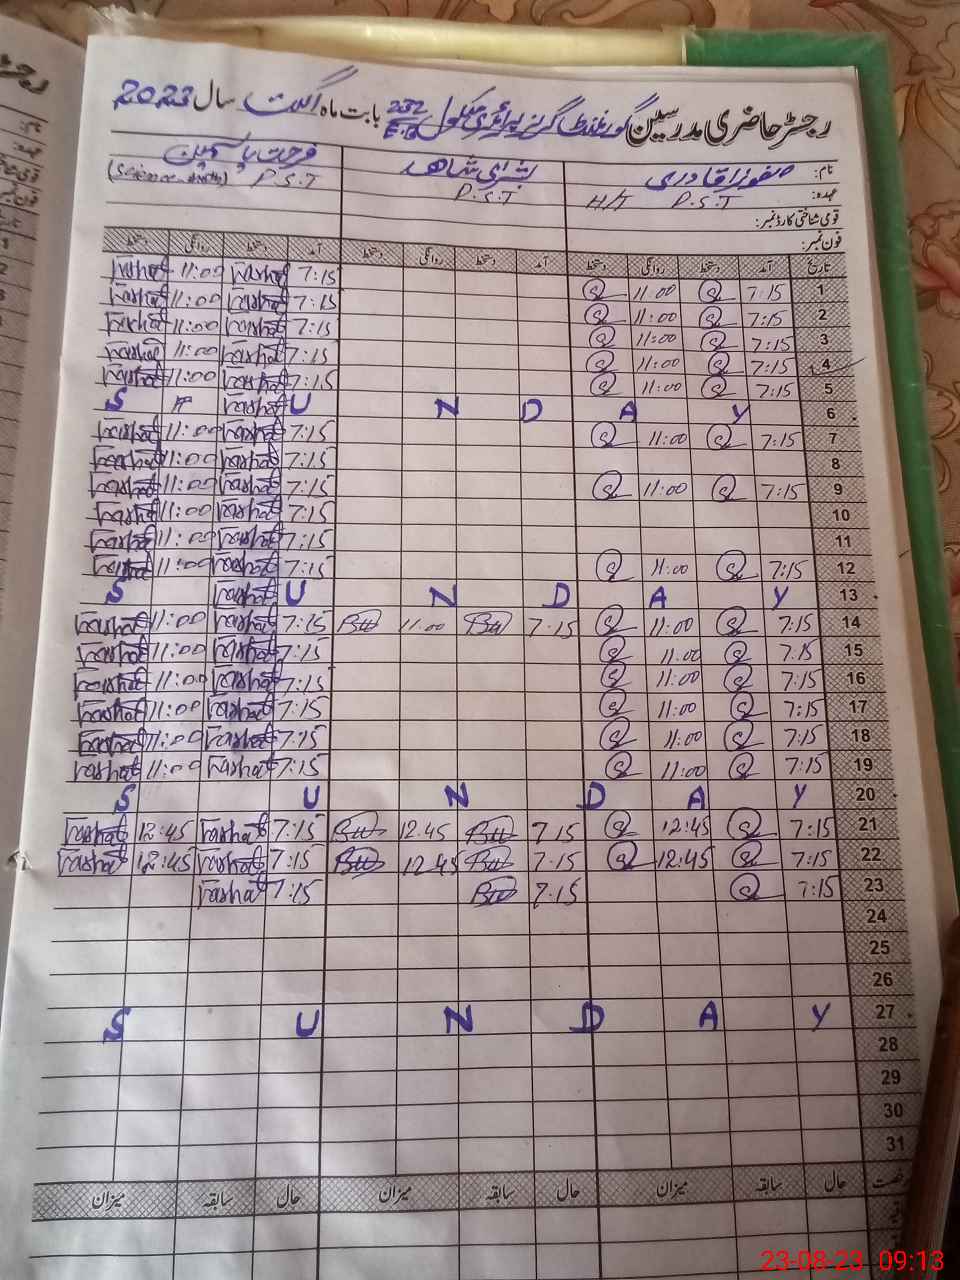 رجسٹر حاضری مدرسین گورنمنٹ گرلز پرائمری سکول 232/E.B بابت ماہ اگست سال 2023
نام: صفورا قادری بشریٰ شاھد فرحت یاسمین
عہدہ: H/T P.S.T P.S.T P.S.T (Science-Math)
قومی شناختی کارڈ نمبر:
فون نمبر:
تاریخ آمد دستخط روانگی دستخط آمد دستخط روانگی دستخط آمد دستخط روانگی دستخط
1 7:15 11:00 7:15 Farhat 11:00 Farhat
2 7:15 11:00 7:15 Farhat 11:00 Farhat
3 7:15 11:00 7:15 Farhat 11:00 Farhat
4 7:15 11:00 7:15 Farhat 11:00 Farhat
5 7:15 11:00 7:15 Farhat 11:00 Farhat
6 S U N D A Y Farhat
7 7:15 11:00 7:15 Farhat 11:00 Farhat
8 7:15 Farhat 11:00 Farhat
9 7:15 11:00 7:15 Farhat 11:00 Farhat
10 7:15 Farhat 11:00 Farhat
11 7:15 Farhat 11:00 Farhat
12 7:15 11:00 7:15 Farhat 11:00 Farhat
13 S U N D A Y Farhat
14 7:15 11:00 7:15 11:00 7:15 Farhat 11:00 Farhat
15 7:15 11:00 7:15 Farhat 11:00 Farhat
16 7:15 11:00 7:15 Farhat 11:00 Farhat
17 7:15 11:00 7:15 Farhat 11:00 Farhat
18 7:15 11:00 7:15 Farhat 11:00 Farhat
19 7:15 11:00 7:15 Farhat 11:00 Farhat
20 S U N D A Y
21 7:15 12:45 7:15 12:45 7:15 Farhat 12:45 Farhat
22 7:15 12:45 7:15 12:45 7:15 Farhat 12:45 Farhat
23 7:15 7:15 7:15 Farhat
24
25
26
27 S U N D A Y
28
29
30
31
حال سابقہ میزان حال سابقہ میزان حال سابقہ میزان
23-08-23 09:13